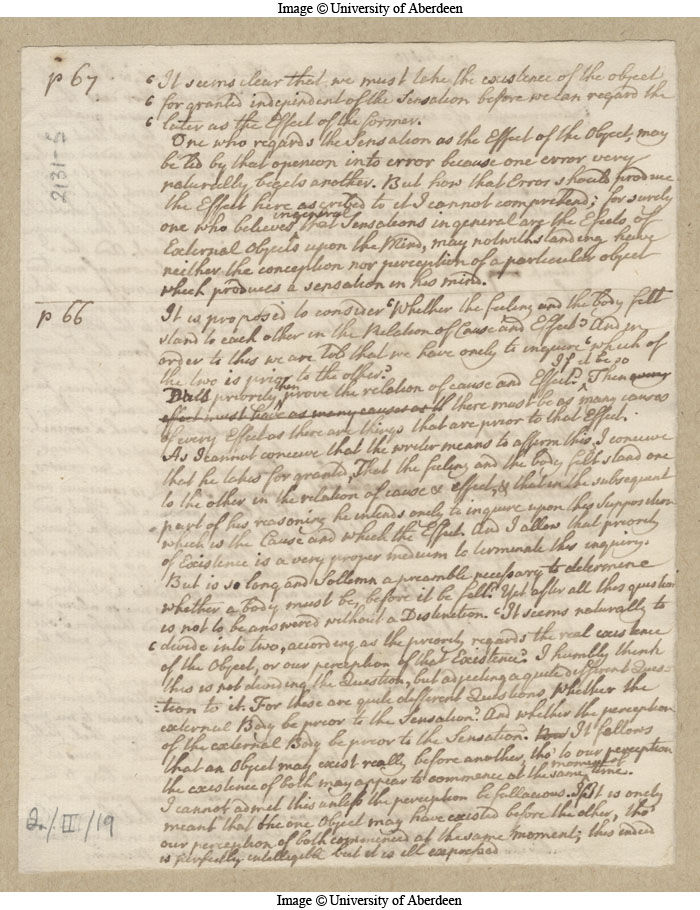 Image © University of Aberdeen
p 67
‘ It seems clear that we must take the existence of the object
‘ for granted independent of the Sensation before we can regard the
‘ later as the Effect of the former.
One who regards the Sensation as the Effect of the Object, may
be led by that openion into error because one error very
naturally begets another. But how that Error should produce
the Effect here ascribed to it I cannot comprehend; for surely
in general
one who believes that Sensations in general are the Effects of
External Objects upon the Mind, may notwithstanding have
neither the conception nor perception of a particular object
which produces a sensation in his mind.
2131-5
p 66
It is proposed to consider ‘Whether the feeling and the body felt
stand to each other in the Relation of Cause and Effect? And in
order to this we are told that we have onely to inquire ‘which of
the two is prior to the other.’ If it be so
Does priority then prove the relation of cause and Effect? Then every
effect must have as many causes as there must be as many causes
of every Effect as there are things that are prior to that Effect.
As I cannot conceive that the writer means to affirm this, I conceive
that he takes for granted, That the feeling and the body felt stand one
to the other in the relation of cause & effect, & that in the subsequent
part of his reasoning he intends onely to inquire upon this Supposition
which is the Cause and which the Effect. And I allow that priority
of Existence is a very proper medium to terminate this inquiry.
But is so long and Sollemn a preamble necessary to determine
whether a body must be, before it be felt? Yet after all this question
is not to be answered without a Distinction. ‘It seems naturally to
‘ divide into two, according as the priority regards the real existence
of the Object, or our perception of that Existence.’ I humbly think
this is not dividing the Question, but adjecting a quite different Ques-
tion to it. For these are quite different Questions, Whether the
external Body be prior to the Sensation? And whether the perception
of the external Body be prior to the Sensation. It follows
that an Object may exist really before another, tho' to our perception
the existence of both may appear to commence at the same moment of time.
I cannot admit this unless the perception be fallacious. If it is onely
meant that the one Object may have existed before the other, tho'
our perception of both commenced at the same moment; this indeed
is perfectly intelligible but it is ill expressed
2/III/19
Image © University of Aberdeen